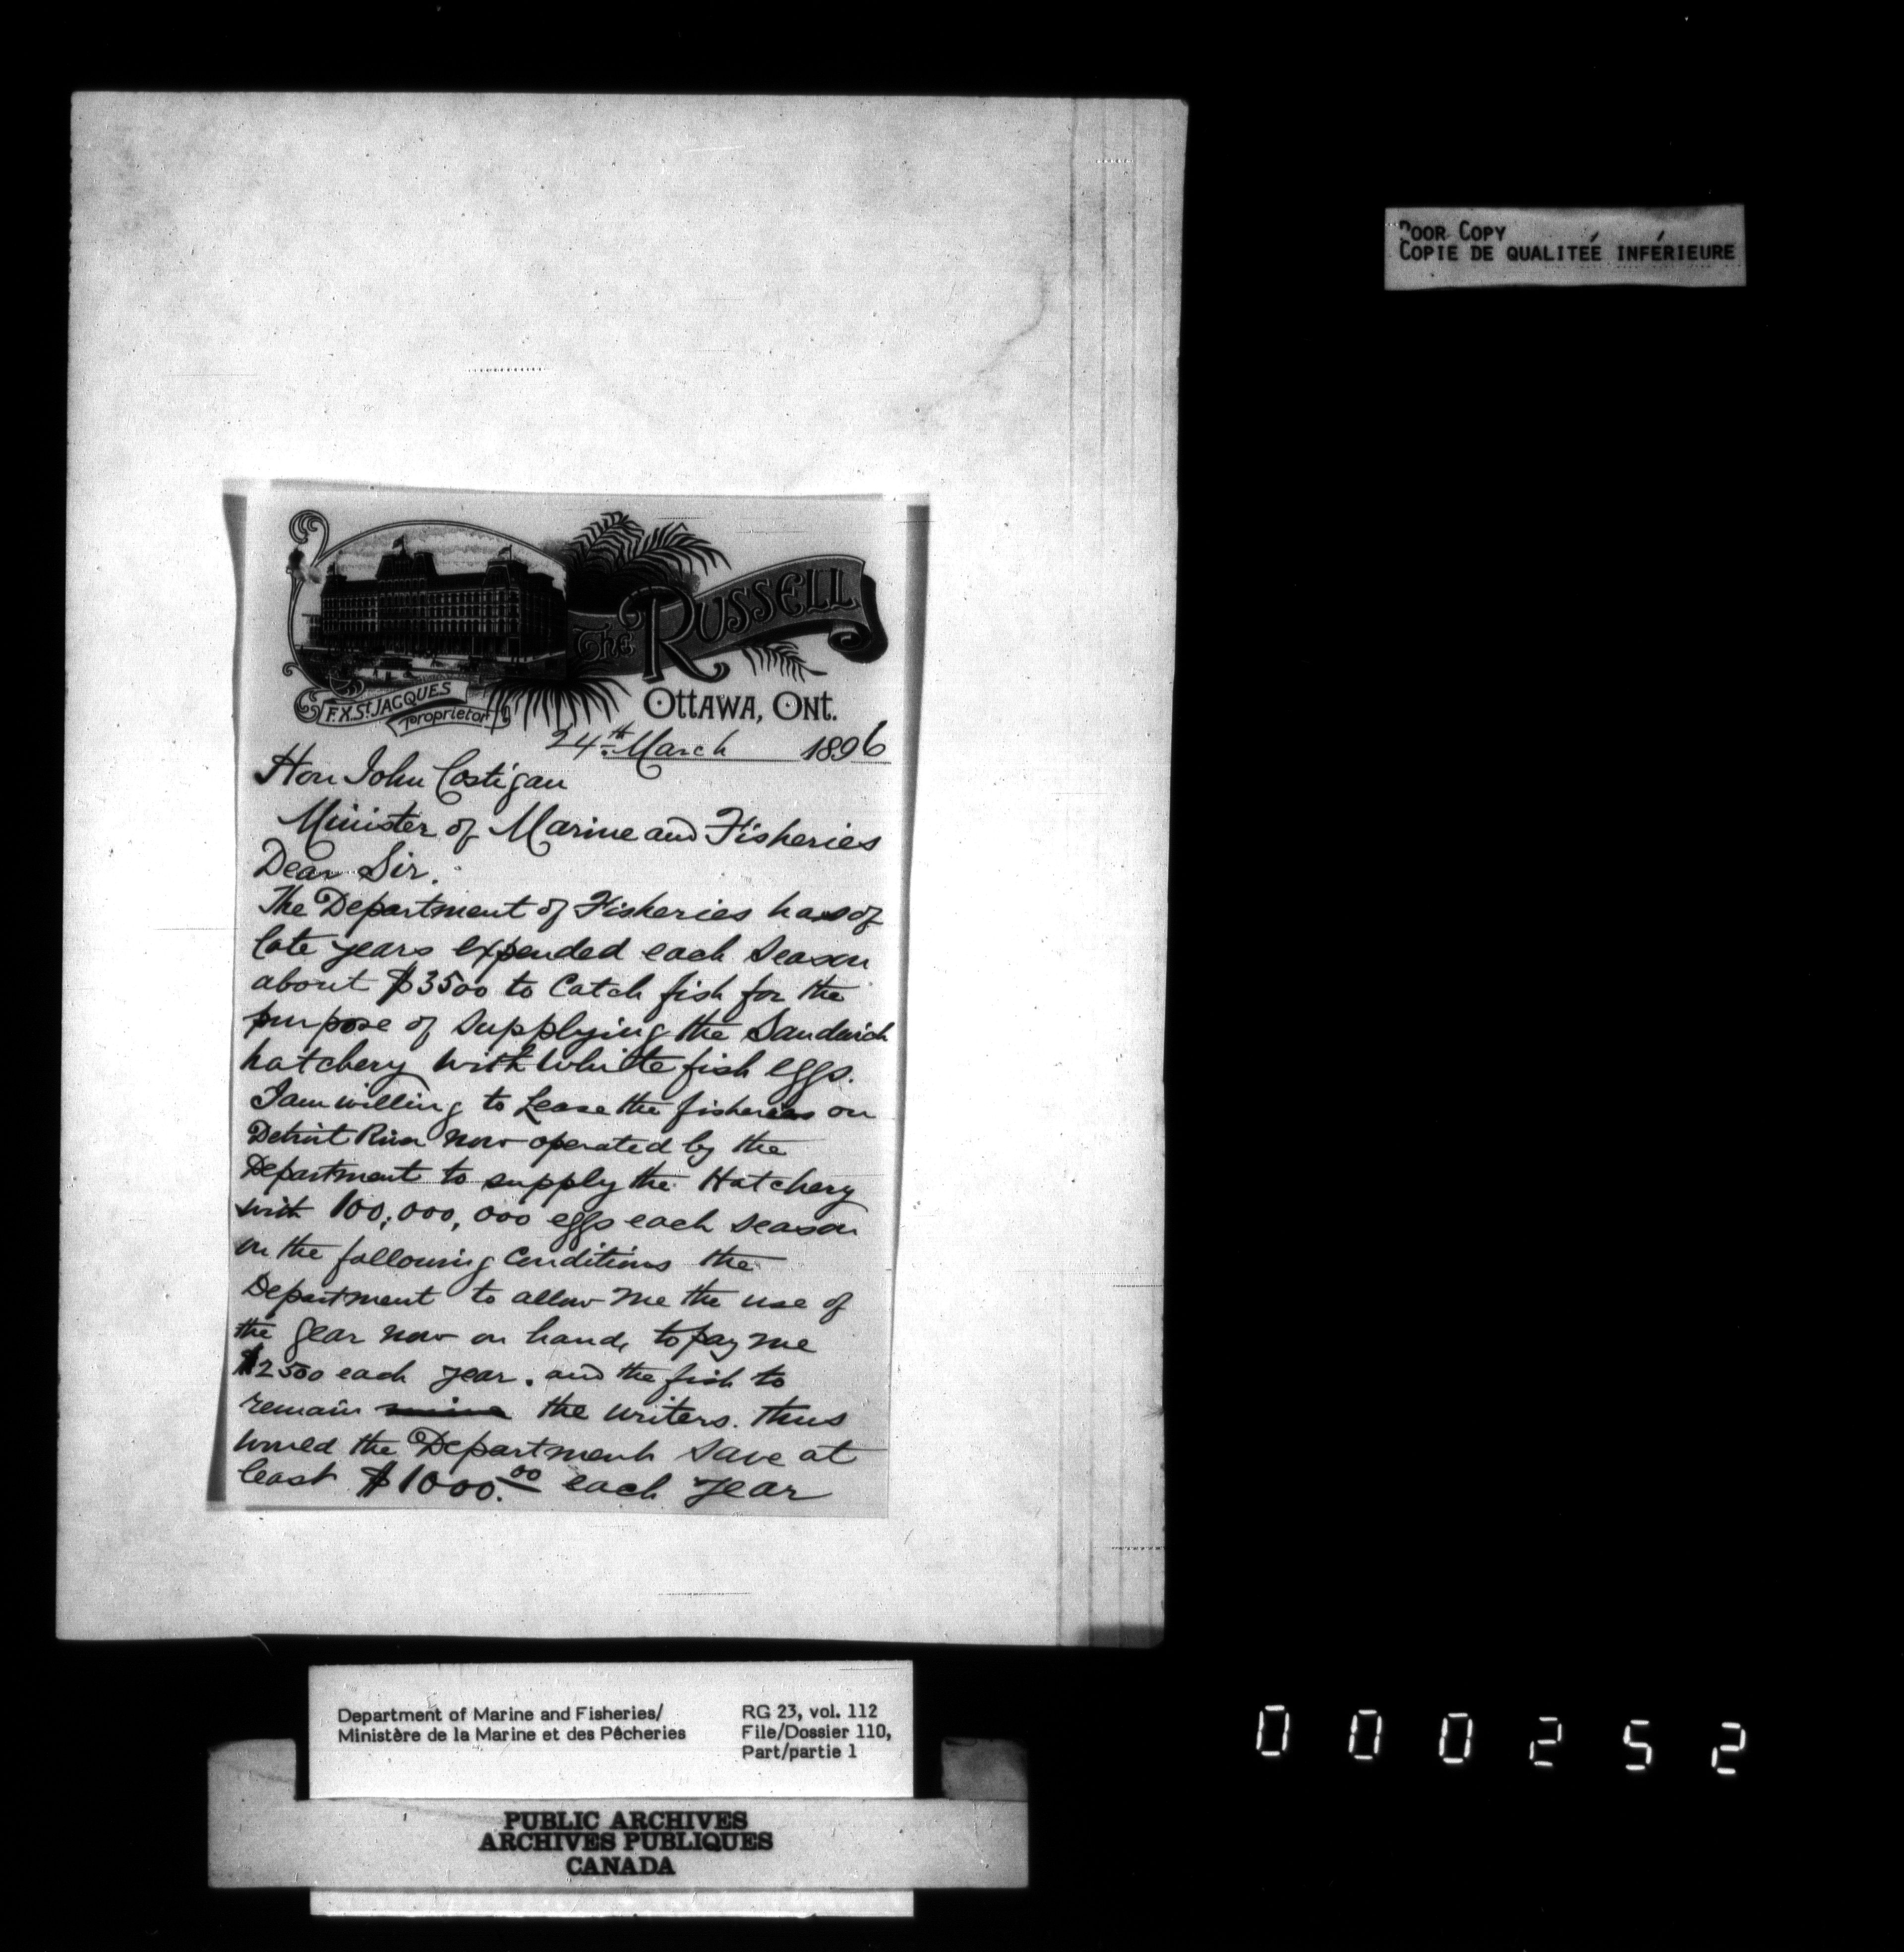 POOR COPY
COPIE DE QUALITÉE INFÉRIEURE
The RUSSELL
F.X. St. JACQUES
Proprietor
OTTAWA, ONT.
24th March 1896
Hon John Costigan
Minister of Marine and Fisheries
Dear Sir.
The Department of Fisheries has of
late years expended each season
about $3500 to Catch fish for the
purpose of supplying the Sandwich
hatchery with White fish eggs.
I am willing to Lease the fisheries on
Detroit River now operated by the
Department to supply the Hatchery
with 100,000,000 eggs each season
on the following Conditions the
Department to allow me the use of
the gear now on hand, to pay me
$2500 each year. and the fish to
remain mine the writers. thus
would the Department save at
least $1000.00 each year
Department of Marine and Fisheries/
Ministère de la Marine et des Pêcheries
RG 23, vol. 112
File/Dossier 110,
Part/partie 1
PUBLIC ARCHIVES
ARCHIVES PUBLIQUES
CANADA
000252